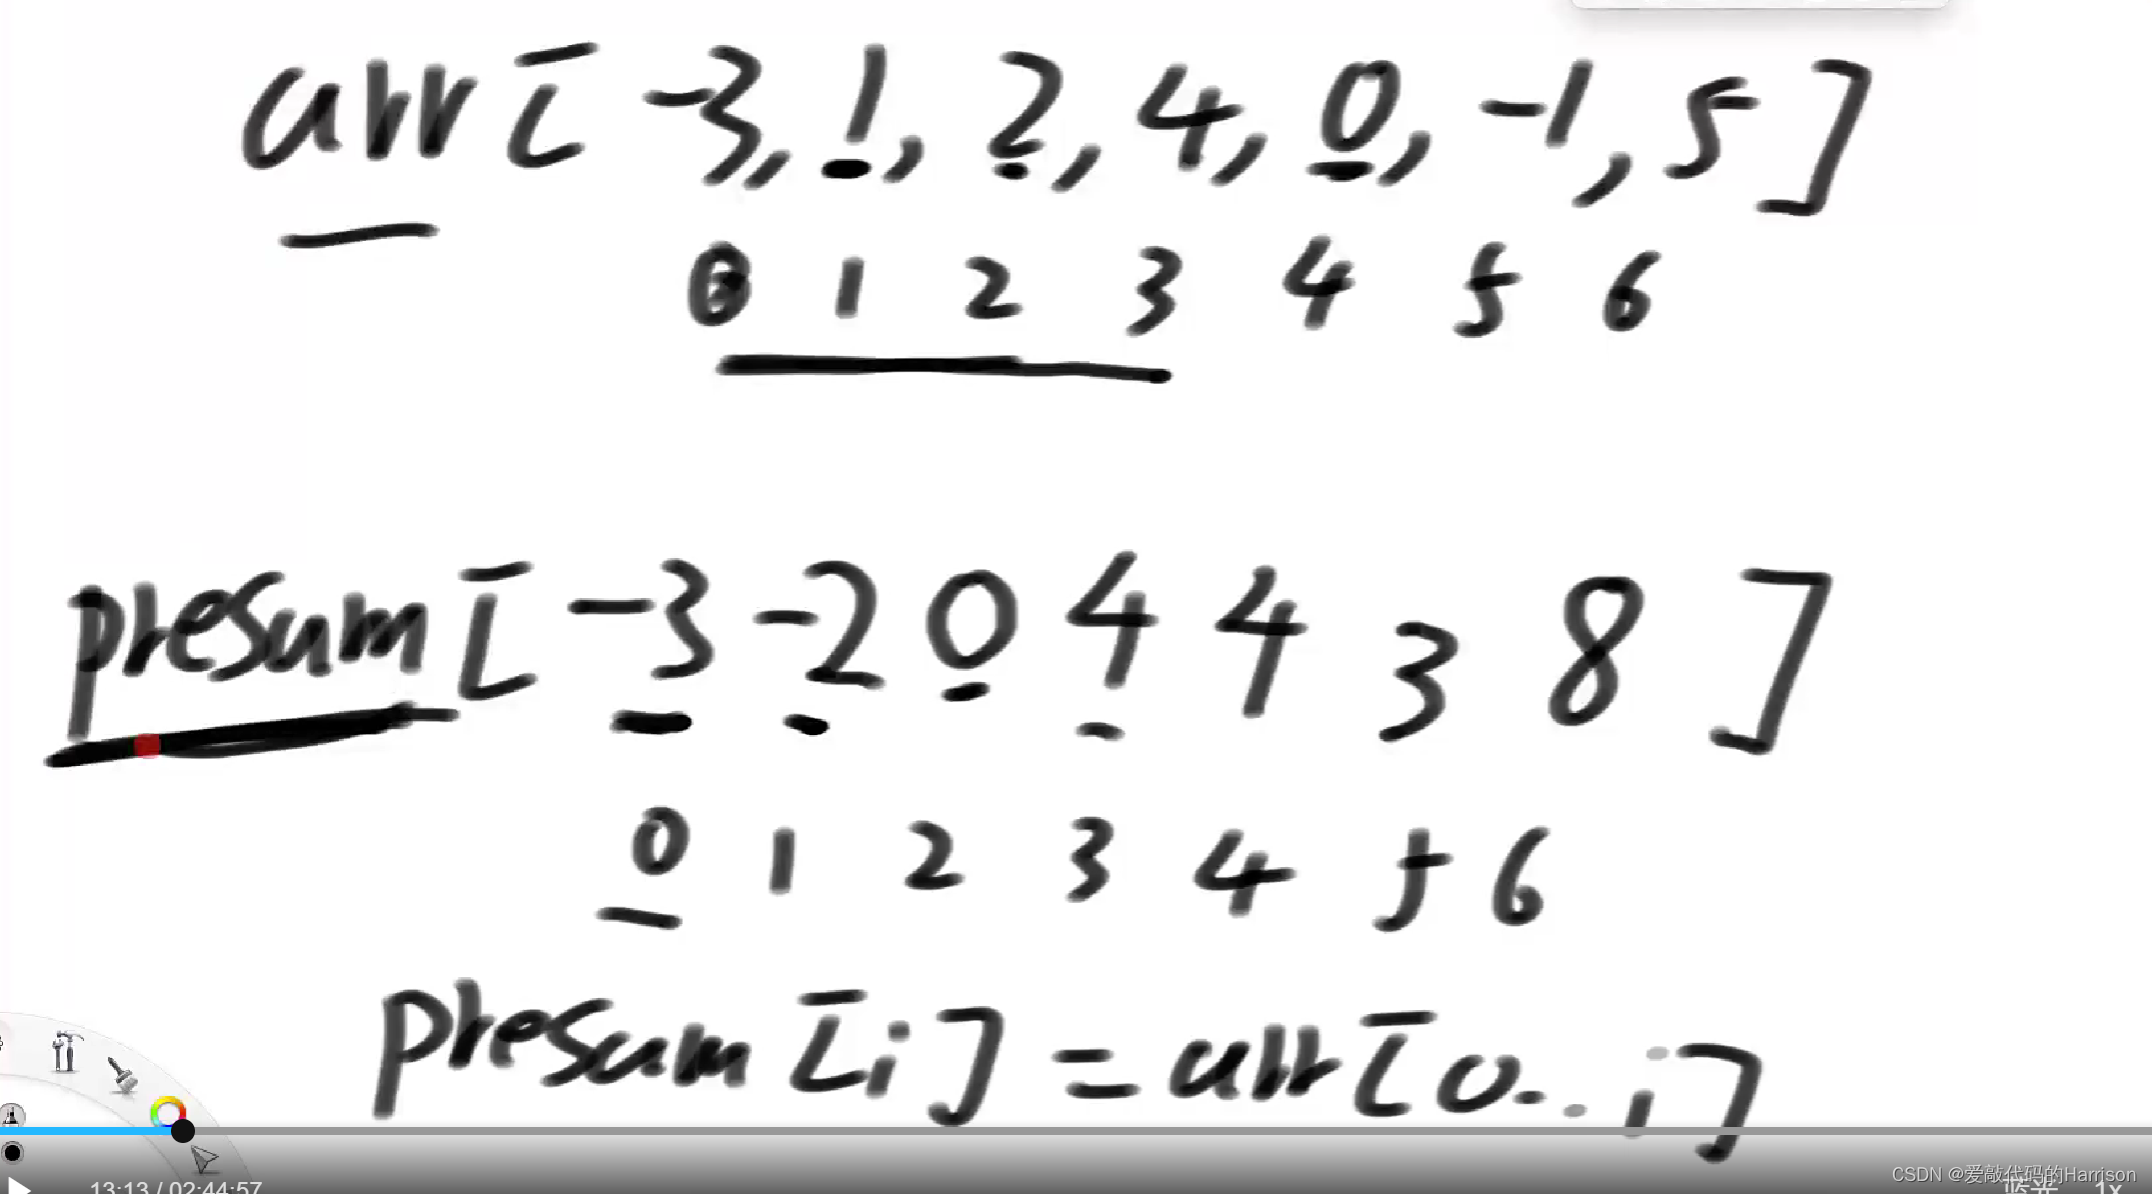 arr[ -3, 1, 2, 4, 0, -1, 5 ]
0 1 2 3 4 5 6
presum[ -3 -2 0 4 4 3 8 ]
0 1 2 3 4 5 6
presum[i] = arr[0...i]
CSDN @爱敲代码的Harrison
13:13 / 02:44:57
蓝光 1x